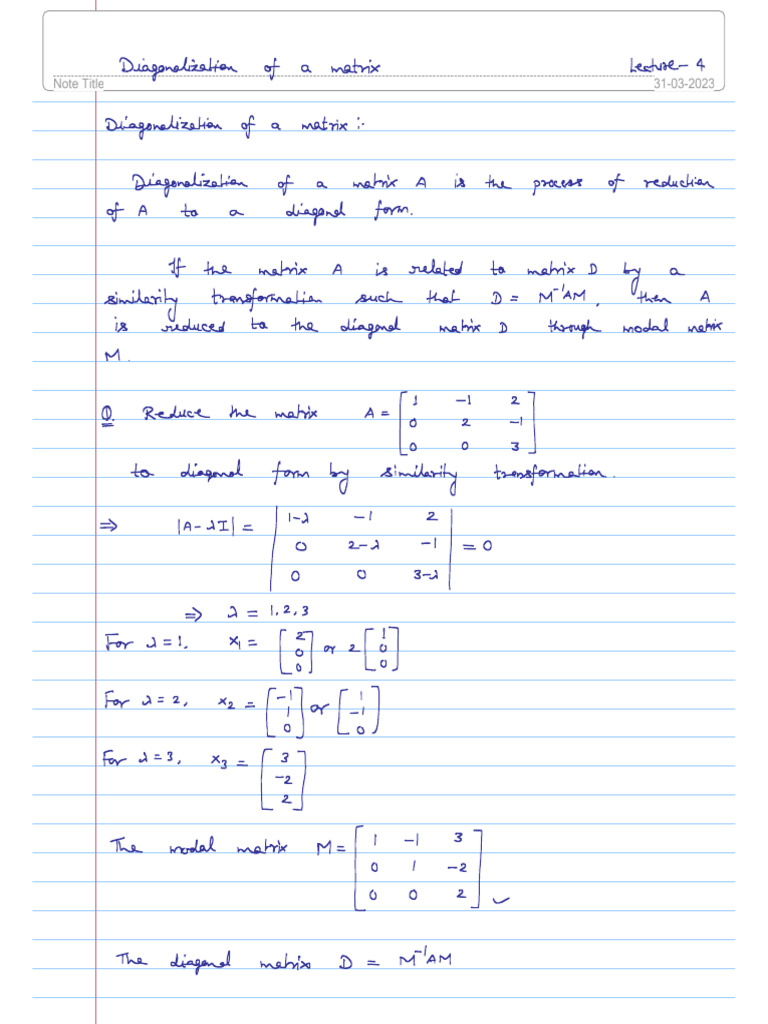 Diagonalization of a matrix Lecture-4
Note Title 31-03-2023
Diagonalization of a matrix :-
Diagonalization of a matrix A is the process of reduction
of A to a diagonal form.
If the matrix A is related to matrix D by a
similarity transformation such that D = M⁻¹AM, then A
is reduced to the diagonal matrix D through modal matrix
M.
Q. Reduce the matrix A = [1 -1 2; 0 2 -1; 0 0 3]
to diagonal form by similarity transformation.
⇒ |A-λI| = |1-λ -1 2; 0 2-λ -1; 0 0 3-λ| = 0
⇒ λ = 1, 2, 3
For λ=1, x₁ = [2; 0; 0] or 2 [1; 0; 0]
For λ=2, x₂ = [-1; 1; 0] or [1; -1; 0]
For λ=3, x₃ = [3; -2; 2]
The modal matrix M = [1 -1 3; 0 1 -2; 0 0 2]
The diagonal matrix D = M⁻¹AM